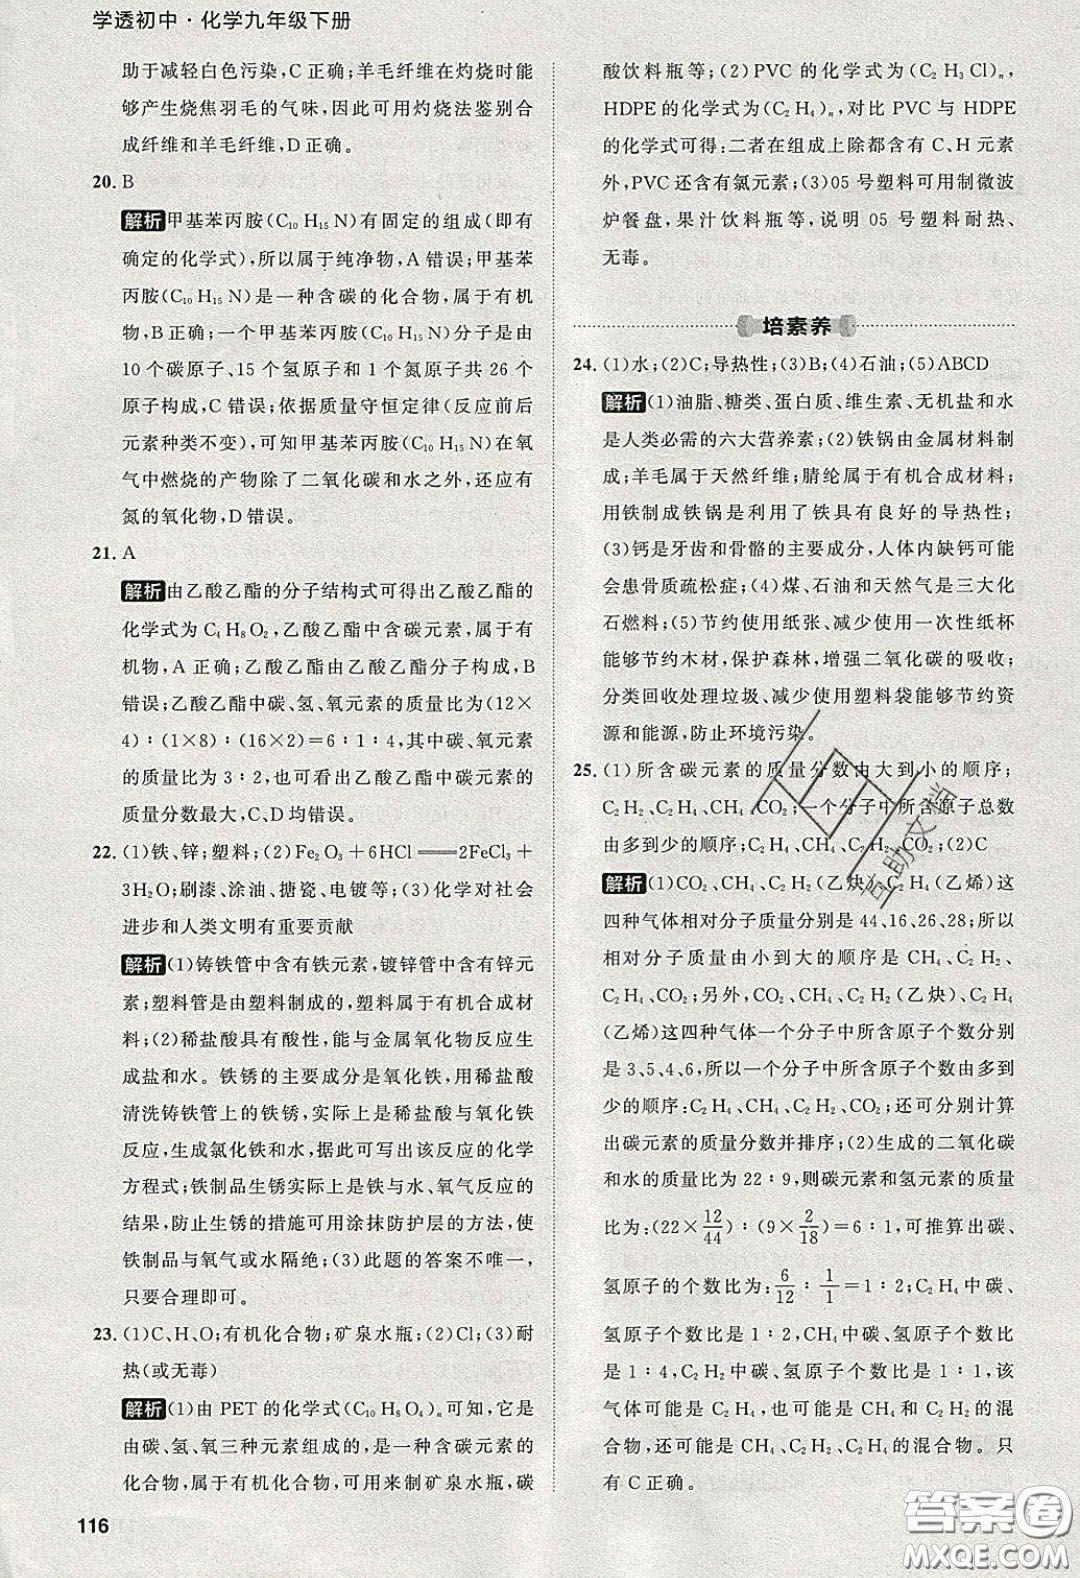 学透初中·化学九年级下册
助于减轻白色污染,C正确;羊毛纤维在灼烧时能
够产生烧焦羽毛的气味,因此可用灼烧法鉴别合
成纤维和羊毛纤维,D正确。
20. B
解析 甲基苯丙胺(C₁₀H₁₅N)有固定的组成(即有
确定的化学式),所以属于纯净物,A错误;甲基苯
丙胺(C₁₀H₁₅N)是一种含碳的化合物,属于有机
物,B正确;一个甲基苯丙胺(C₁₀H₁₅N)分子是由
10个碳原子、15个氢原子和1个氮原子共26个
原子构成,C错误;依据质量守恒定律(反应前后
元素种类不变),可知甲基苯丙胺(C₁₀H₁₅N)在氧
气中燃烧的产物除了二氧化碳和水之外,还应有
氮的氧化物,D错误。
21. A
解析 由乙酸乙酯的分子结构式可得出乙酸乙酯的
化学式为C₄H₈O₂,乙酸乙酯中含碳元素,属于有
机物,A正确;乙酸乙酯由乙酸乙酯分子构成,B
错误;乙酸乙酯中碳、氢、氧元素的质量比为(12×
4)∶(1×8)∶(16×2)=6∶1∶4,其中碳、氧元素
的质量比为3∶2,也可看出乙酸乙酯中碳元素的
质量分数最大,C、D均错误。
22. (1)铁、锌;塑料;(2)Fe₂O₃+6HCl══2FeCl₃+
3H₂O;刷漆、涂油、搪瓷、电镀等;(3)化学对社会
进步和人类文明有重要贡献
解析 (1)铸铁管中含有铁元素,镀锌管中含有锌元
素;塑料管是由塑料制成的,塑料属于有机合成材
料;(2)稀盐酸具有酸性,能与金属氧化物反应生
成盐和水。铁锈的主要成分是氧化铁,用稀盐酸
清洗铸铁管上的铁锈,实际上是稀盐酸与氧化铁
反应,生成氯化铁和水,据此可写出该反应的化学
方程式;铁制品生锈实际上是铁与水、氧气反应的
结果,防止生锈的措施可用涂抹防护层的方法,使
铁制品与氧气或水隔绝;(3)此题的答案不唯一,
只要合理即可。
23. (1)C、H、O;有机化合物;矿泉水瓶;(2)Cl;(3)耐
热(或无毒)
解析 (1)由PET的化学式(C₁₀H₈O₄)ₙ可知,它是
由碳、氢、氧三种元素组成的、含碳元素的
化合物,属于有机化合物,可用来制矿泉水瓶,碳
酸饮料瓶等;(2)PVC的化学式为(C₂H₃Cl)ₙ,
HDPE的化学式为(C₂H₄)ₙ,对比PVC与HDPE
化学式可得:二者在组成上除都含有C、H元素
外,PVC还含有氯元素;(3)05号塑料可用制微波
炉餐盘,果汁饮料瓶等,说明05号塑料耐热、
无毒。
培素养
24. (1)水;(2)C;导热性;(3)B;(4)石油;(5)ABCD
解析 (1)油脂、糖类、蛋白质、维生素、无机盐和水
是人类必需的六大营养素;(2)铁锅由金属材料制
成;羊毛属于天然纤维;腈纶属于有机合成材料;
用铁制成铁锅是利用了铁具有良好的导热性;
(3)钙是牙齿和骨骼的主要成分,人体内缺钙可能
会患骨质疏松症;(4)煤、石油和天然气是三大化
石燃料;(5)节约使用纸张、减少使用一次性纸杯
能够节约木材,保护森林,增强二氧化碳的吸收;
分类回收处理垃圾、减少使用塑料袋能够节约资
源和能源,防止环境污染。
25. (1)所含碳元素的质量分数由大到小的顺序;
C₂H₂、C₂H₄、CH₄、CO₂;一个分子中所含原子总数
由多到少的顺序;C₂H₄、CH₄、C₂H₂、CO₂;(2)C
解析 (1)CO₂、CH₄、C₂H₂(乙炔)、C₂H₄(乙烯)这
四种气体相对分子质量分别是44、16、26、28;所以
相对分子质量由小到大的顺序是CH₄、C₂H₂、
C₂H₄、CO₂;另外,CO₂、CH₄、C₂H₂(乙炔)、C₂H₄
(乙烯)这四种气体一个分子中所含原子个数分别
是3、5、4、6,所以一个分子中所含原子个数由多到
少的顺序:C₂H₄、CH₄、C₂H₂、CO₂;还可分别计算
出碳元素的质量分数并排序;(2)生成的二氧化碳
和水的质量比为22∶9,则碳元素和氢元素的质量
比为:(22×12/44)∶(9×2/18)=6∶1,可推算出碳、
氢原子的个数比为:6/12∶1/1=1∶2;C₂H₄中碳、
氢原子个数比是1∶2,CH₄中碳、氢原子个数比
是1∶4,C₂H₂中碳、氢原子个数比是1∶1,该
气体可能是C₂H₄,也可能是CH₄、C₂H₂的混
合物,还可能是CH₄、C₂H₂、C₂H₄的混合物。只
有C正确。
116
日
互助文档
答案圈
MXQE.COM